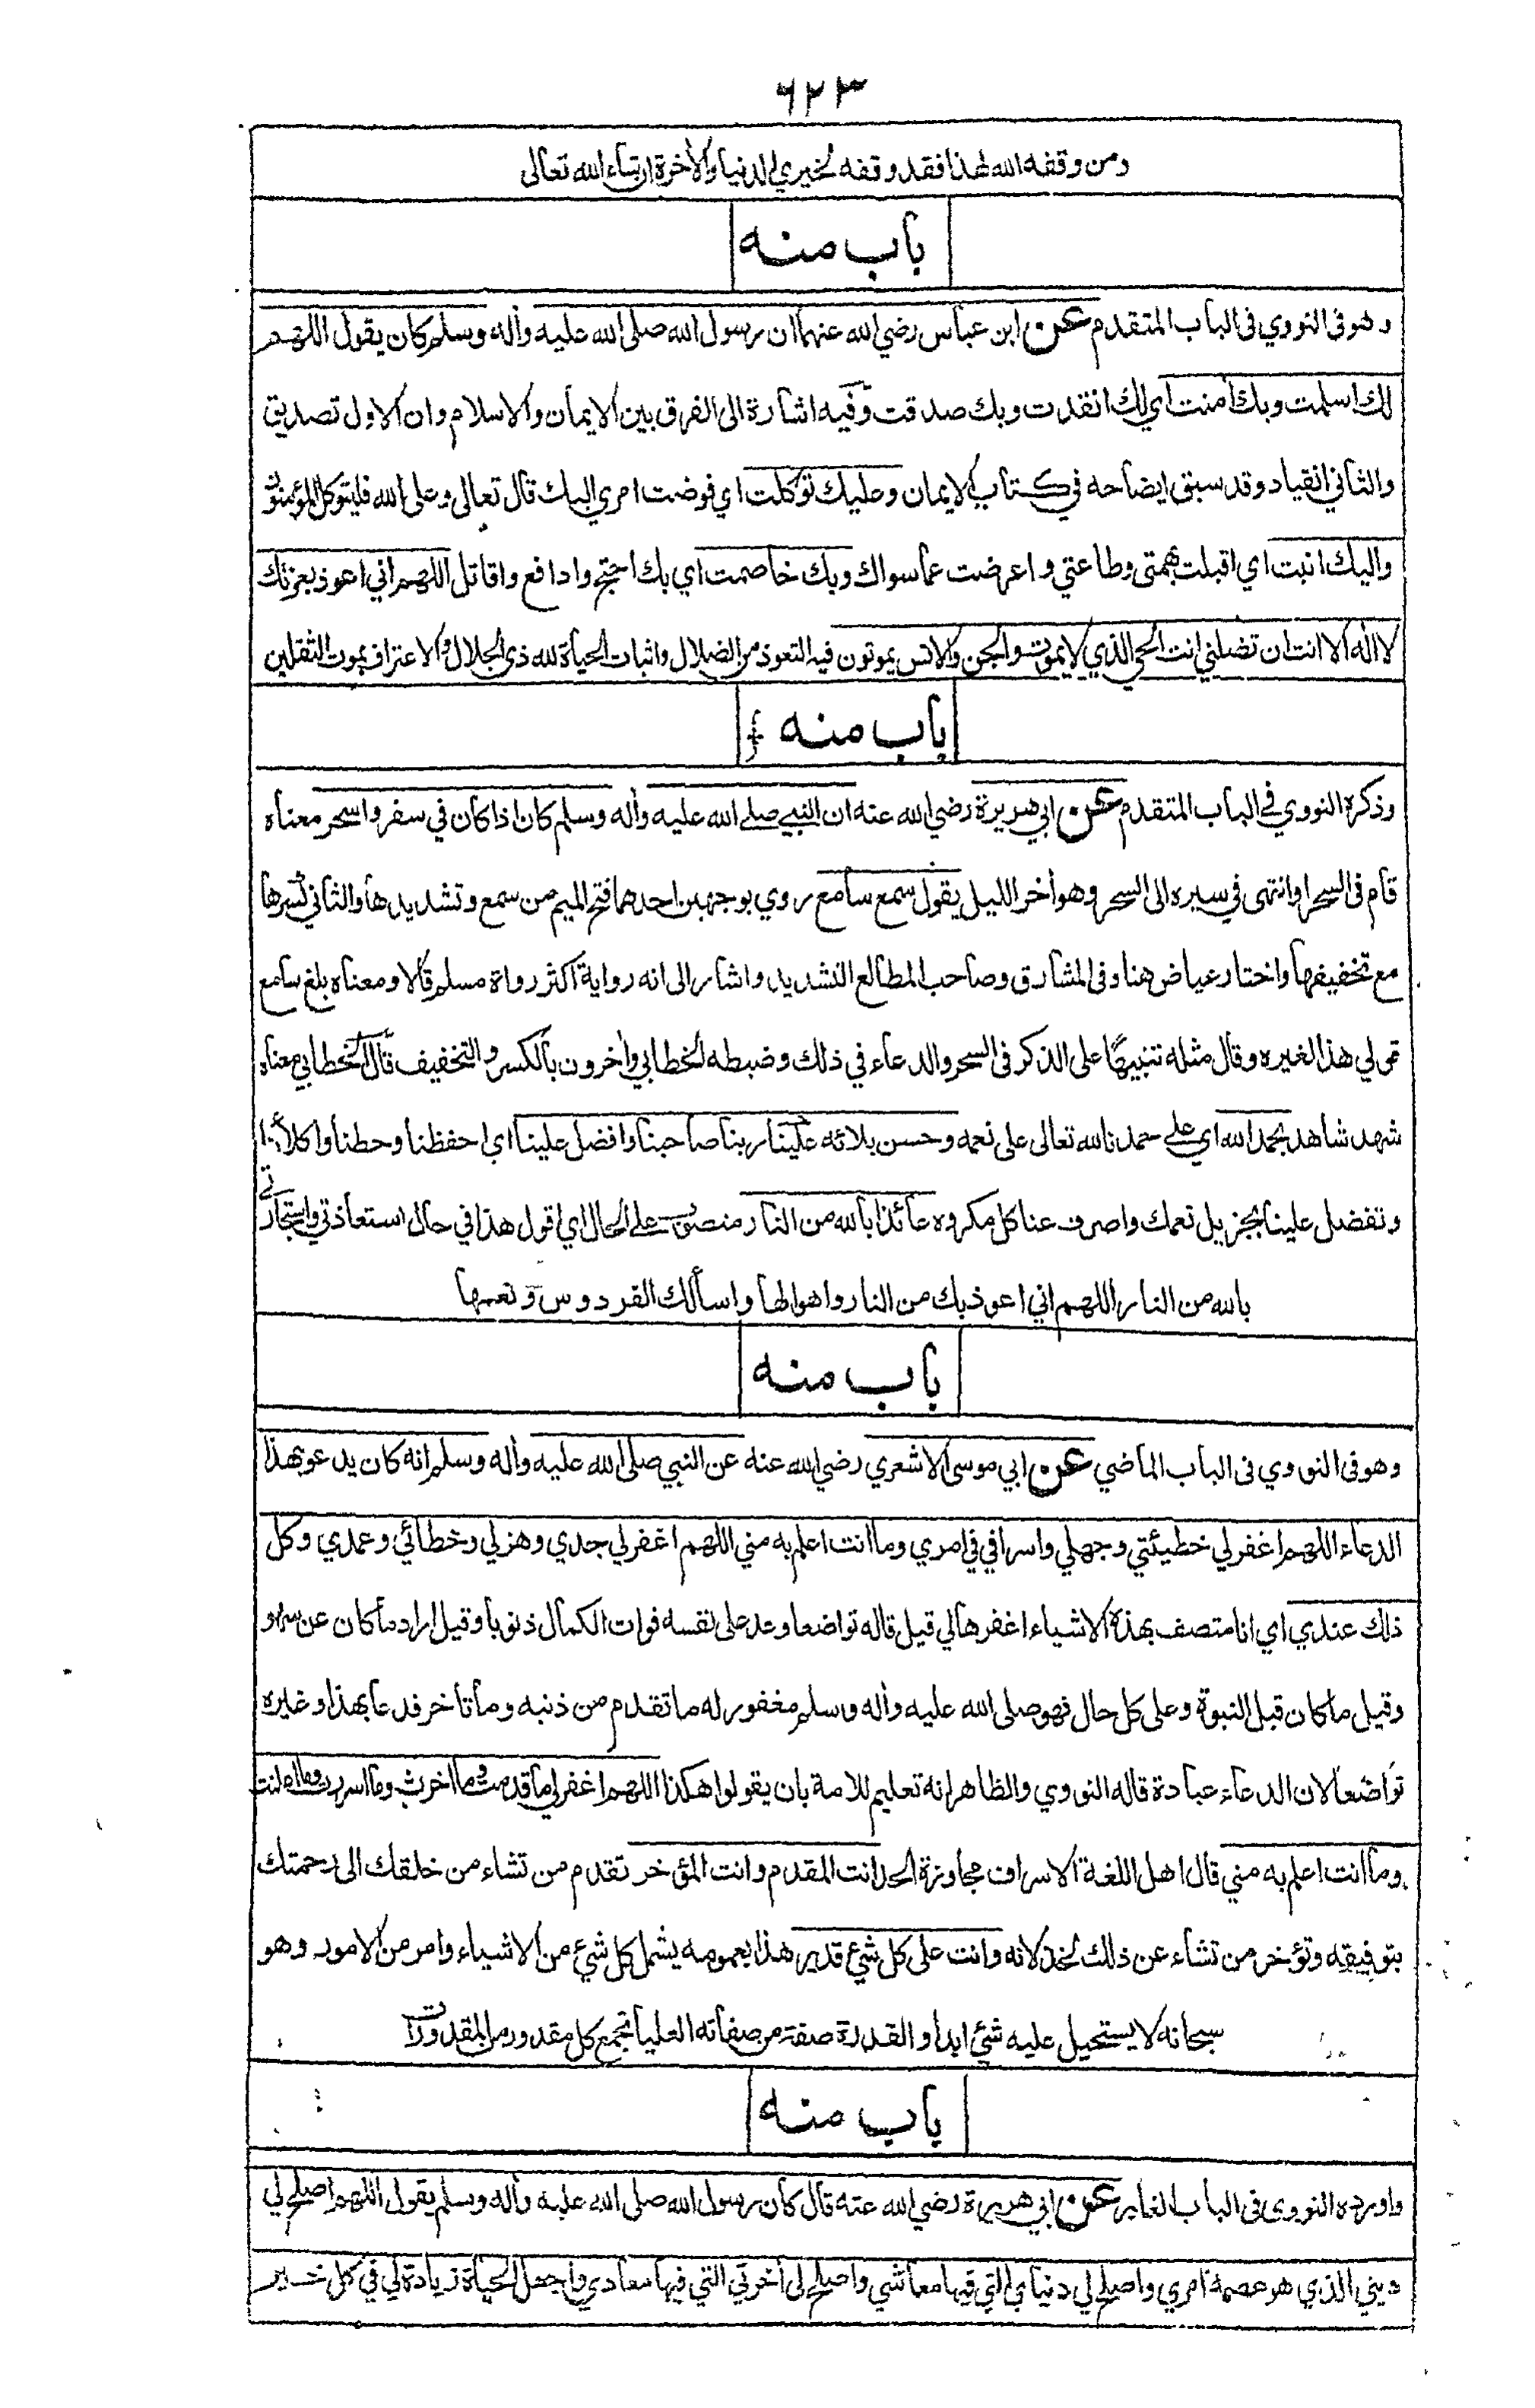 ٦٢٣
ومن وقفه الله لهذا فقد وقفه لخيري الدنيا والأخرة ان شاء الله تعالى
باب منه
وهو فى النووي فى الباب المتقدم عن ابن عباس رضي الله عنهما ان رسول الله صلى الله عليه وأله وسلم كان يقول اللهم
لك اسلمت وبك أمنت اي لك انقدت وبك صدقت وفيه اشارة الى الفرق بين الايمان والاسلام وان الاول تصديق
والثاني انقياد وقد سبق ايضاحه في كتاب الايمان وعليك توكلت اي فوضت امري اليك قال تعالى وعلى الله فليتوكل المؤمنون
واليك انبت اي اقبلت بهمتى وطاعتي واعرضت عما سواك وبك خاصمت اي بك احتج وادافع واقاتل اللهم اني اعوذ بعزتك
لا اله الا انت ان تضلني انت الحي الذي لا يموت والجن والانس يموتون فيه التعوذ من الضلال واثبات الحياة لله ذى الجلال والاعتراف بموت الثقلين
باب منه
وذكره النووي في الباب المتقدم عن ابي هريرة رضي الله عنه ان النبي صلى الله عليه وأله وسلم كان اذا كان في سفر واسحر معناه
قام فى السحر او انتهى في سيره الى السحر وهو أخر الليل يقول سمع سامع روي بوجهين احدهما فتح الميم من سمع وتشديدها والثاني كسرها
مع تخفيفها واختار عياض هنا وفى المشارق وصاحب المطالع التشديد واشار الى انه رواية اكثر رواة مسلم قالا ومعناه بلغ سامع
قولي هذا لغيره وقال مثله تنبيها على الذكر فى السحر والدعاء في ذلك وضبطه الخطابي وأخرون بالكسر والتخفيف قال الخطابي معناه
شهد شاهد بحمد الله اي على حمدنا لله تعالى على نعمه وحسن بلائه علينا ربنا صاحبنا وافضل علينا اي احفظنا وحطنا واكلأنا
وتفضل علينا بجزيل نعمك واصرف عنا كل مكروه عائذا بالله من النار منصوب على الحال اي اقول هذا في حال استعاذتي واستجارتي
بالله من النار اللهم اني اعوذ بك من النار واهوالها واسألك الفردوس ونعمها
باب منه
وهو فى النووي فى الباب الماضي عن ابي موسى الاشعري رضي الله عنه عن النبي صلى الله عليه وأله وسلم انه كان يدعو بهذا
الدعاء اللهم اغفر لي خطيئتي وجهلي واسرافي في امري وما انت اعلم به مني اللهم اغفر لي جدي وهزلي وخطائي وعمدي وكل
ذلك عندي اي انا متصف بهذة الاشياء اغفرها لي قيل قاله تواضعا وعد على نفسه فوات الكمال ذنوبا وقيل اراد ما كان عن سهو
وقيل ما كان قبل النبوة وعلى كل حال فهو صلى الله عليه وأله وسلم مغفور له ما تقدم من ذنبه وما تأخر فدعا بهذا وغيره
تواضعا لان الدعاء عبادة قاله النووي والظاهر انه تعليم للامة بان يقولوا هكذا اللهم اغفر لي ما قدمت وما اخرت وما اسررت وما اعلنت
وما انت اعلم به مني قال اهل اللغة الاسراف مجاوزة الحد انت المقدم وانت المؤخر تقدم من تشاء من خلقك الى رحمتك
بتوفيقه وتؤخر من تشاء عن ذلك لخذلانه وانت على كل شئ قدير هذا بعمومه يشمل كل شئ من الاشياء وامر من الامور وهو
سبحانه لا يستحيل عليه شئ ابدا والقدرة صفة من صفاته العليا تجمع كل مقدور من المقدورات
باب منه
واورده النووى فى الباب الغابر عن ابي هريرة رضي الله عنه قال كان رسول الله صلى الله عليه وأله وسلم يقول اللهم اصلح لي
ديني الذي هو عصمة امري واصلح لي دنياي التي فيها معاشي واصلح لي أخرتي التي فيها معادي واجعل الحياة زيادة لي في كل خير